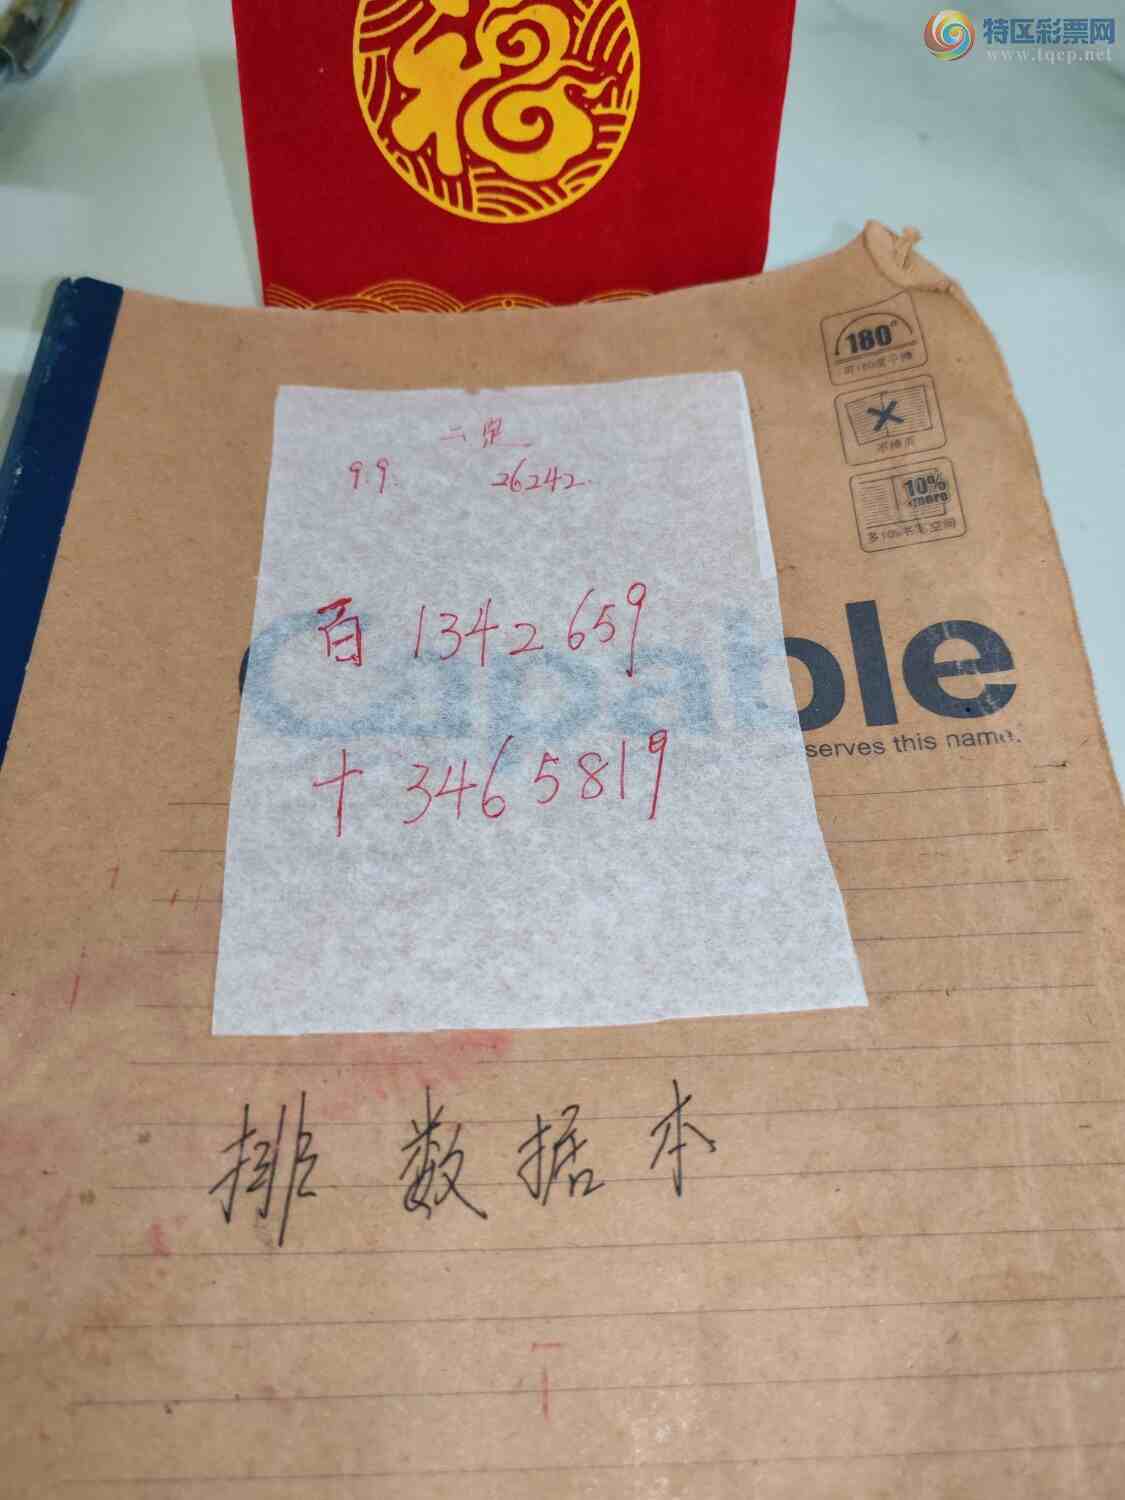 特区彩票网
www.tqcp.net
福
180°
可180度平摊
不掉页
10%
more
多10%书写空间
二定
9.9. 26242.
百 1342659
十 3465819
Capable
serves this name.
排 数据本